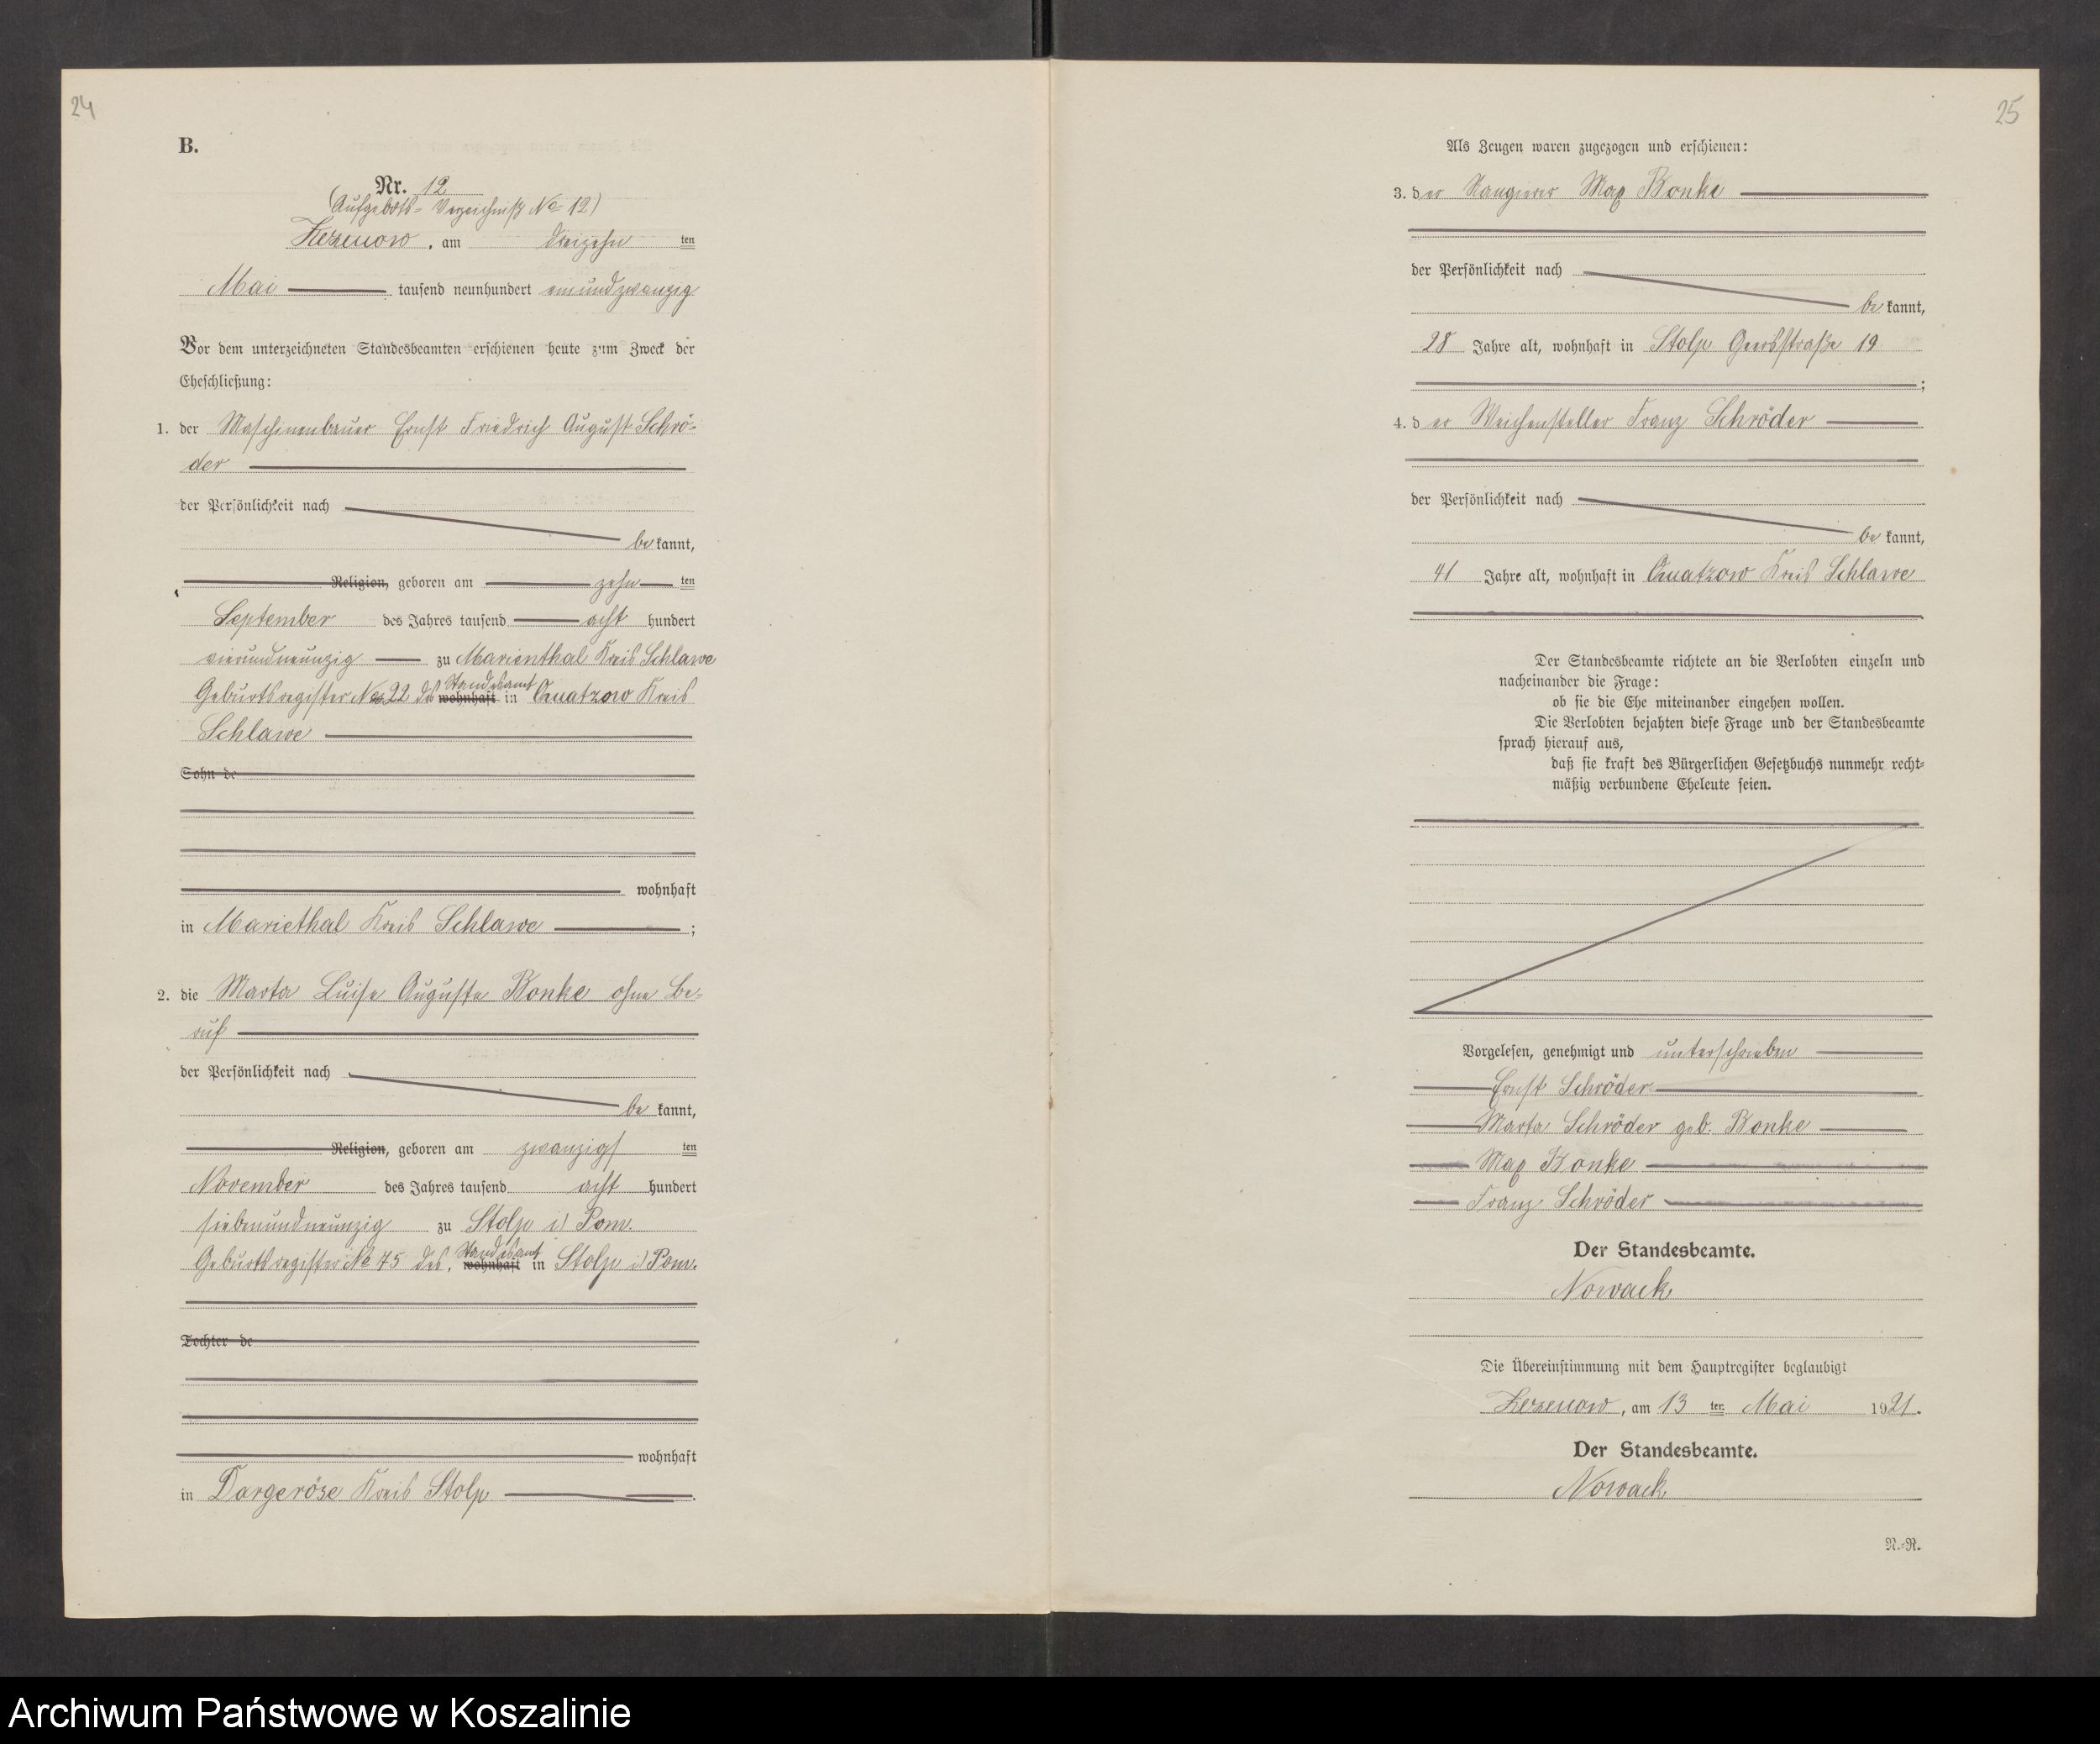 24
B.
Nr. 12
(Aufgebots-Verzeichniß No 12)
Zezenow, am dreizehn ten
Mai tausend neunhundert einundzwanzig
Vor dem unterzeichneten Standesbeamten erschienen heute zum Zweck der
Eheschließung:
1. der Maschinenbauer Ernst Friedrich August Schrö-
der
der Persönlichkeit nach
be kannt,
Religion, geboren am zehn ten
September des Jahres tausend acht hundert
vierundneunzig zu Marienthal Kreis Schlawe
Geburtsregister No 22 des Standesamt wohnhaft in Quatzow Kreis
Schlawe
Sohn de
wohnhaft
in Mariethal Kreis Schlawe ;
2. die Marta Luise Auguste Bonke ohne Be-
ruf
der Persönlichkeit nach
be kannt,
Religion, geboren am zwanzigs ten
November des Jahres tausend acht hundert
siebenundneunzig zu Stolp i/ Pom.
Geburtsregister No 75 des Standesamt wohnhaft in Stolp i/ Pom.
Tochter de
wohnhaft
in Dargeröse Kreis Stolp .
25
Als Zeugen waren zugezogen und erschienen:
3. der Rangierer Max Bonke
der Persönlichkeit nach
be kannt,
28 Jahre alt, wohnhaft in Stolp 19
;
4. der Weichensteller Franz Schröder
der Persönlichkeit nach
be kannt,
41 Jahre alt, wohnhaft in Quatzow Kreis Schlawe
Der Standesbeamte richtete an die Verlobten einzeln und
nacheinander die Frage:
ob sie die Ehe miteinander eingehen wollen.
Die Verlobten bejahten diese Frage und der Standesbeamte
sprach hierauf aus,
daß sie kraft des Bürgerlichen Gesetzbuchs nunmehr recht-
mäßig verbundene Eheleute seien.
Vorgelesen, genehmigt und unterschrieben
Ernst Schröder
Marta Schröder geb. Bonke
Max Bonke
Franz Schröder
Der Standesbeamte.
Nowack
Die Übereinstimmung mit dem Hauptregister beglaubigt
Zezenow, am 13 ten Mai 1921.
Der Standesbeamte.
Nowack
N.-R.
Archiwum Państwowe w Koszalinie